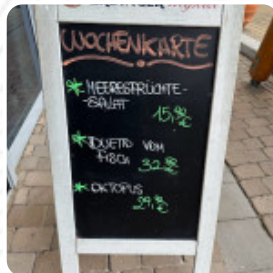 WOCHENKARTE
MEERESFRÜCHTE-
-SALAT
15,90 €
DUETTO VOM
FISCH 32,90 €
OKTOPUS
29,90 €